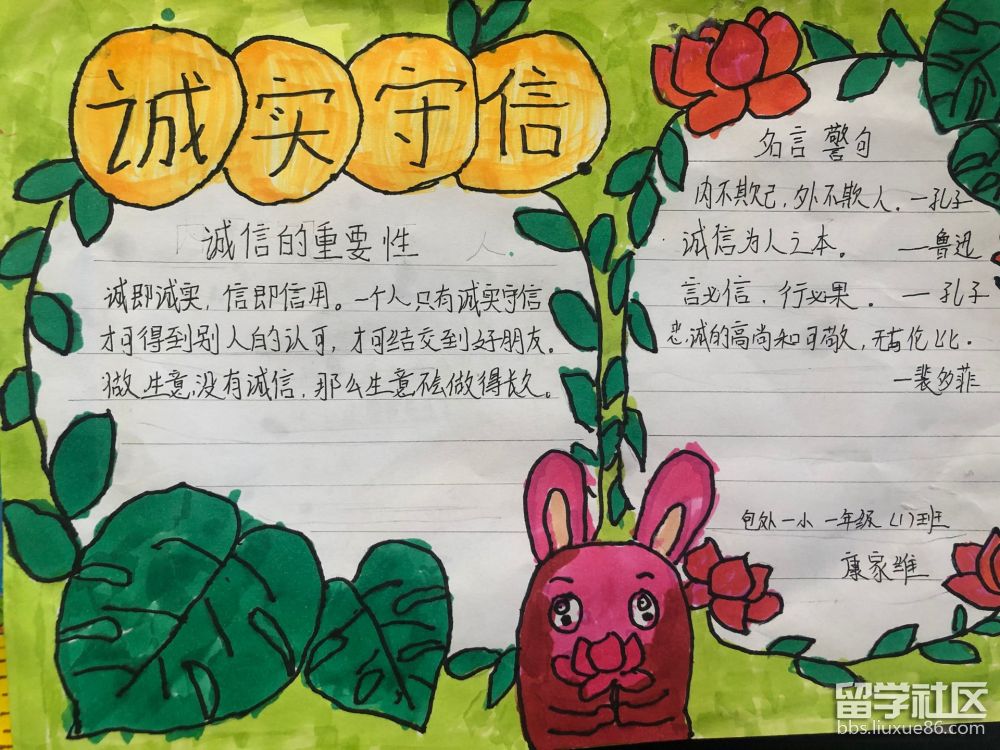 诚实守信
诚信的重要性
诚即诚实，信即信用。一个人只有诚实守信
才可得到别人的认可，才可结交到好朋友。
做生意没有诚信，那么生意不会做得长久。
名言警句
内不欺己，外不欺人。—孔子
诚信为人之本。 —鲁迅
言必信，行必果。—孔子
忠诚的高尚和可敬，无与伦比。
—裴多菲
包外一小 一年级（1）班
康家维
留学社区
bbs.liuxue86.com